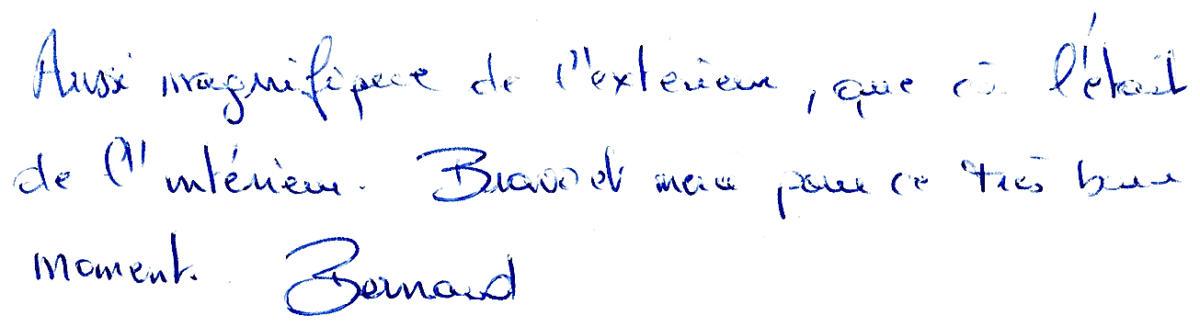 Aussi magnifique de l'exterieur, que ça l'était
de l'intérieur. Bravo et merci pour ce très beau
moment. Bernard